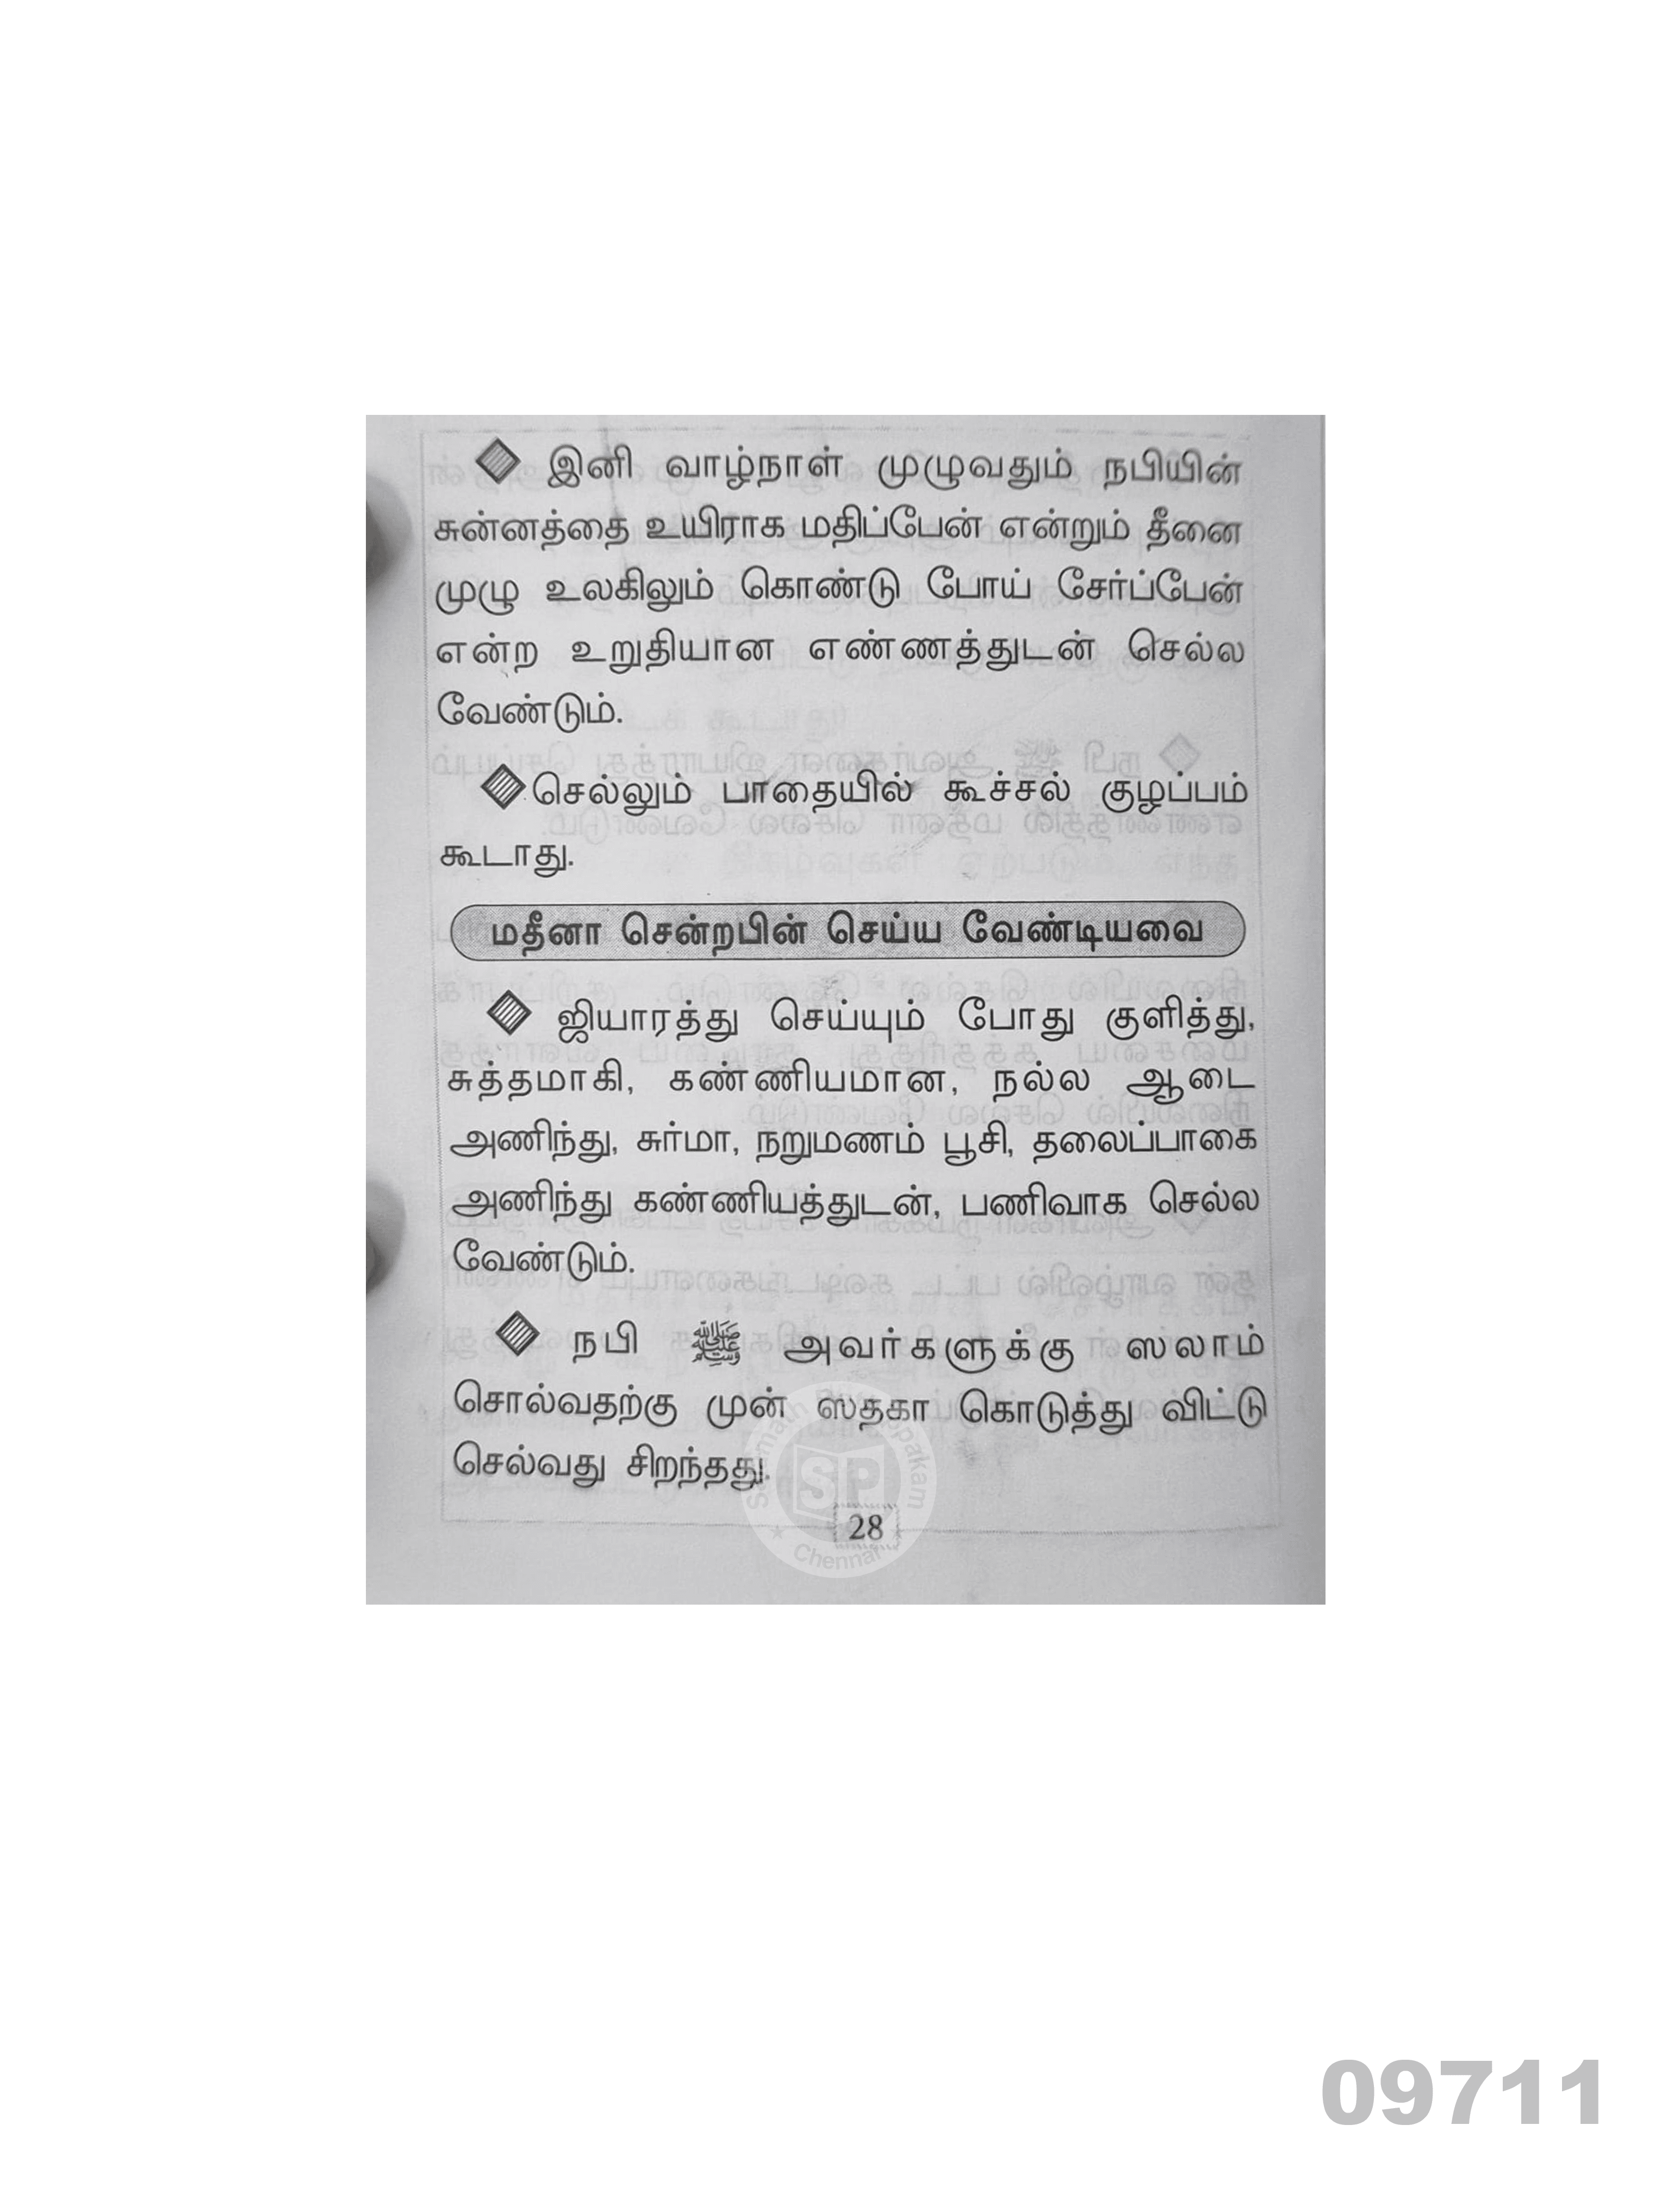 இனி வாழ்நாள் முழுவதும் நபியின்
சுன்னத்தை உயிராக மதிப்பேன் என்றும் தீனை
முழு உலகிலும் கொண்டு போய் சேர்ப்பேன்
என்ற உறுதியான எண்ணத்துடன் செல்ல
வேண்டும்.
செல்லும் பாதையில் கூச்சல் குழப்பம்
கூடாது.
மதீனா சென்றபின் செய்ய வேண்டியவை
ஜியாரத்து செய்யும் போது குளித்து,
சுத்தமாகி, கண்ணியமான, நல்ல ஆடை
அணிந்து, சுர்மா, நறுமணம் பூசி, தலைப்பாகை
அணிந்து கண்ணியத்துடன், பணிவாக செல்ல
வேண்டும்.
நபி ﷺ அவர்களுக்கு ஸலாம்
சொல்வதற்கு முன் ஸதகா கொடுத்து விட்டு
செல்வது சிறந்தது.
SP
28
Chennai
09711